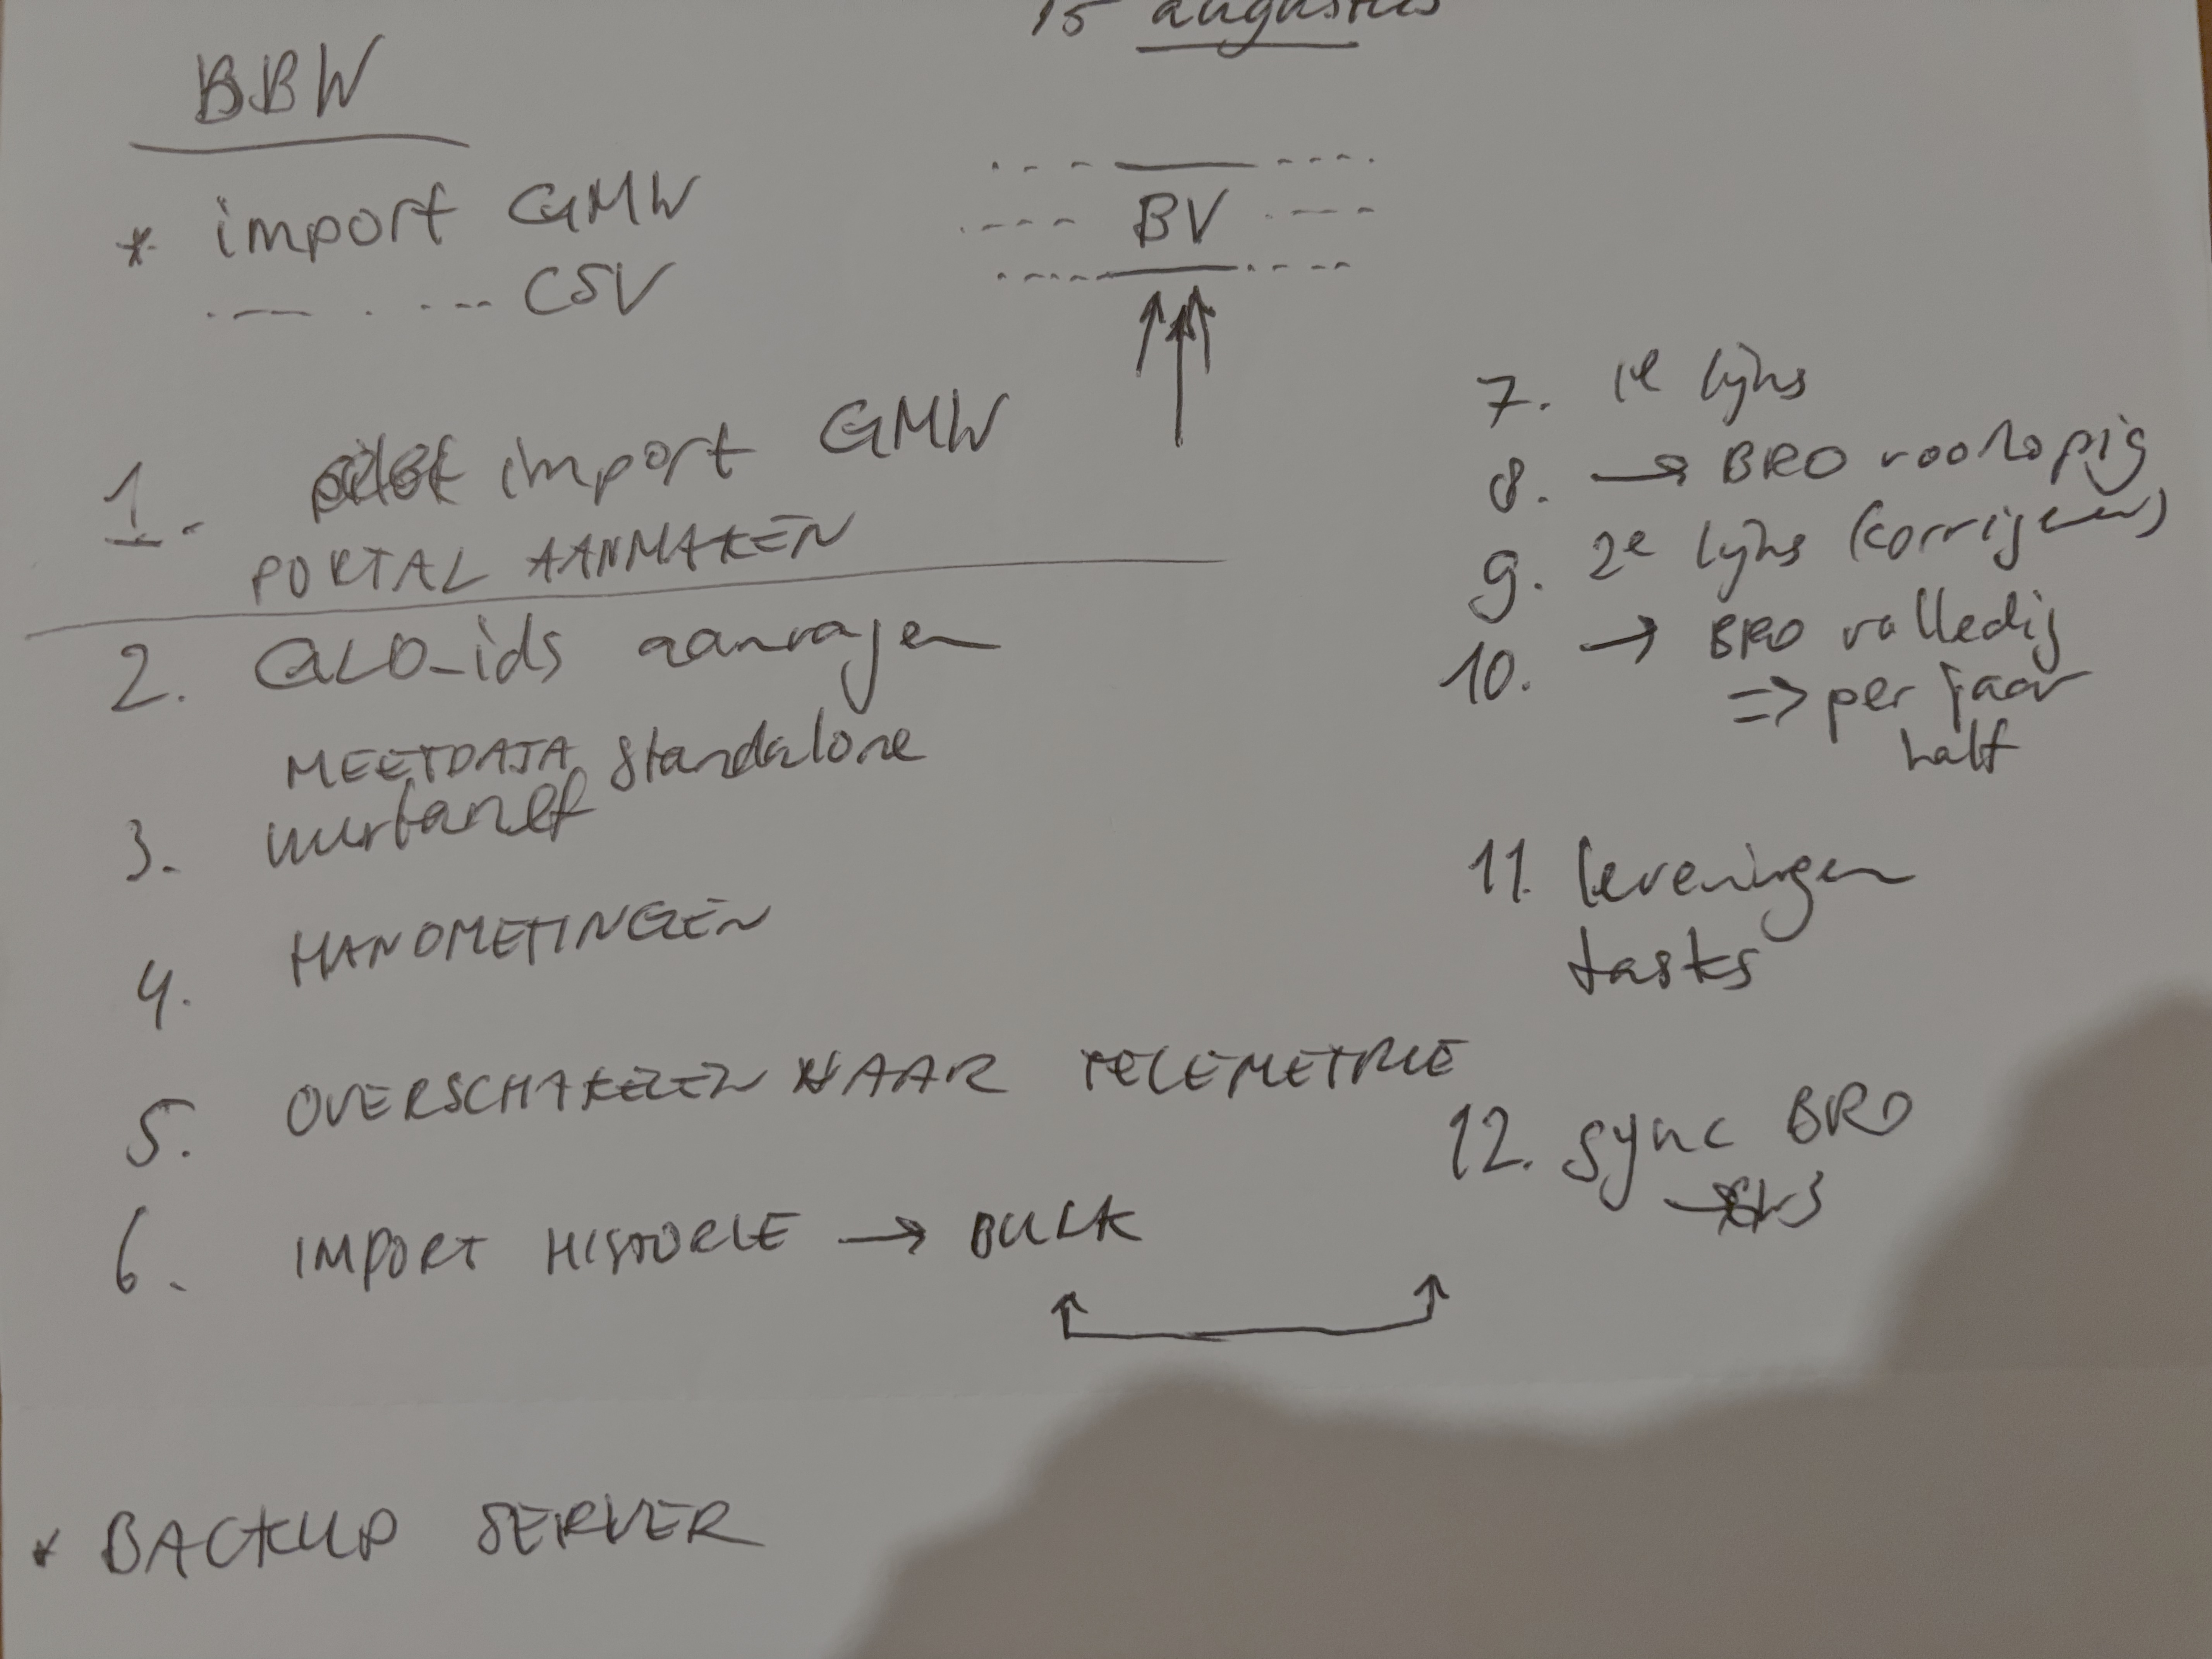 15 augustus
BBW
* import GMW
CSV
BV
1. import GMW
PORTAL AANMAKEN
2. GLD-ids aanvragen
MEETDATA standalone
3. vurtanet
4. HANDMETINGEN
5. OVERSCHAKELEN NAAR TELEMETRIE
6. IMPORT HISTORIE → BULK
7. 1e lijns
8. → BRO voorlopig
9. 2e lijns (corrigeren)
10. → BRO volledig
=> per jaar
half
11. leveringen
tasks
12. sync BRO
* BACKUP SERVER